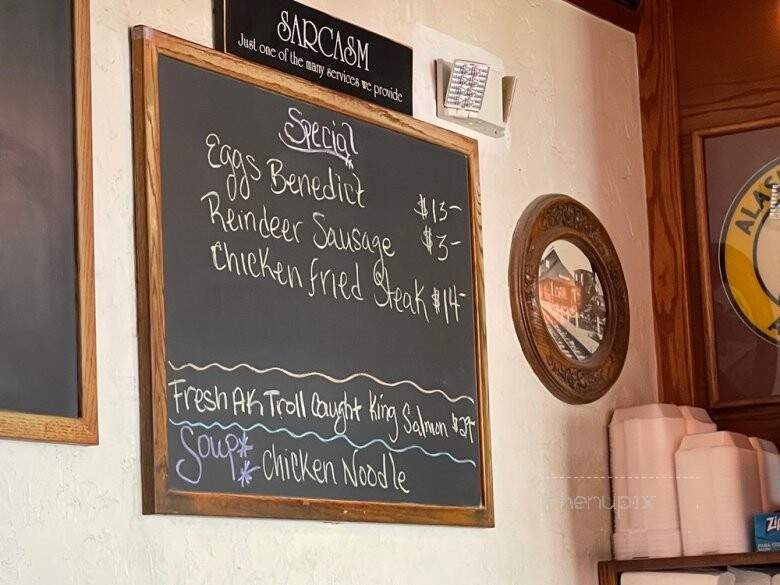 SARCASM
Just one of the many services we provide
Special
Eggs Benedict $13-
Reindeer Sausage $3-
Chicken fried Steak $14-
Fresh AK Troll Caught King Salmon $29
Soup** Chicken Noodle
ALAS
menupix
Zip